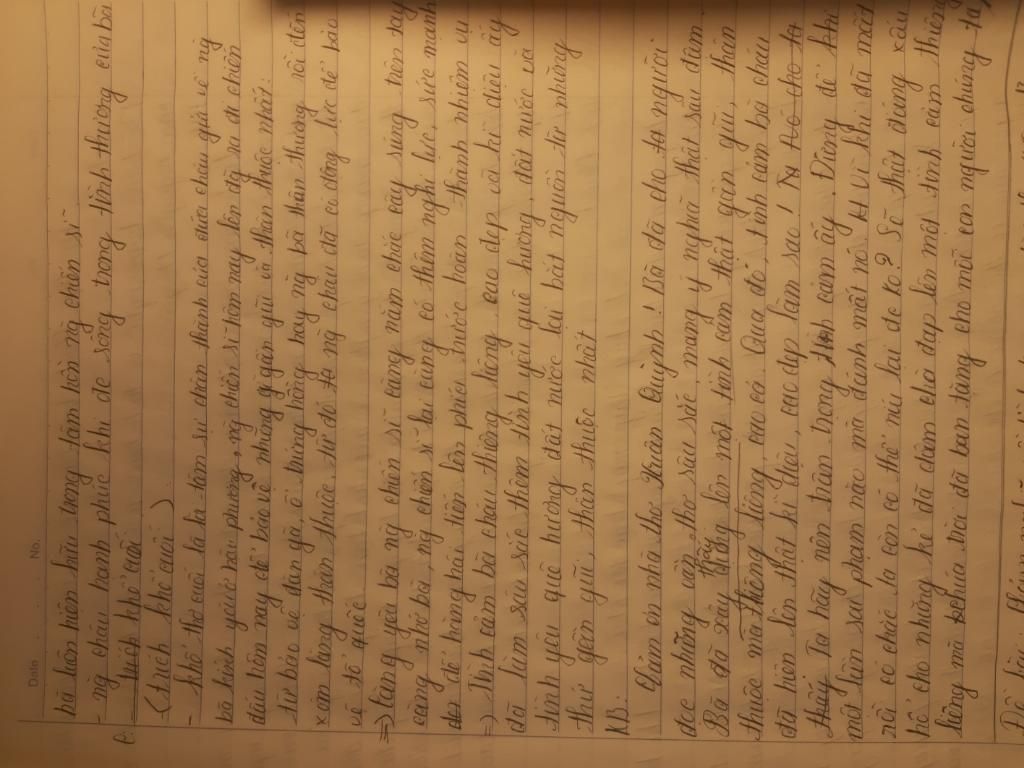 Date
No.
bà luôn hiện hữu trong tâm hồn ng chiến sĩ
- ng cháu hạnh phúc khi đc sống trong tình thương của bà
C. trích khổ cuối
- (trích khổ cuối)
- khổ thơ cuối là lời tâm sự chân thành của đứa cháu gửi về ng
bà kính yêu ở hậu phương, ng chiến sĩ hôm nay lên đg ra đi chiến
đấu hôm nay để bảo vệ những gì gần gũi và thân thuộc nhất
từ bảo vệ đàn gà, ổ trứng hồng hay ng bà thân thương rồi đến
xóm làng thân thuộc từ đó ng cháu đã có động lực để bảo
vệ tổ quốc
=> Càng yêu bà ng chiến sĩ càng nắm chắc cây súng trên tay
càng nhớ bà, ng chiến sĩ lại càng có thêm nghị lực, sức mạnh
để hăng hái tiến lên phía trước hoàn thành nhiệm vụ
=) Tình cảm bà cháu thiêng liêng cao đẹp và kì diệu ấy
đã làm sâu sắc thêm tình yêu quê hương, đất nước và
tình yêu quê hương đất nước lại bắt nguồn từ những
thứ gần gũi, thân thuộc nhất
KB.
Cảm ơn nhà thơ Xuân Quỳnh! Bà đã cho người
đọc những vần thơ sâu sắc, mang ý nghĩa thật sâu đậm
Bà đã xây dựng lên một tình cảm thật gần gũi, thân
thuộc mà thiêng liêng, cao cả. Qua đó, tình cảm bà cháu
đã hiện lên thật kì diệu, cao đẹp làm sao!
Ta hãy nên trân trọng tình cảm ấy. Đừng để khi
một lần sai phạm nào mà đánh mất nó Vì khi đã mất
rồi có chắc ta còn có thể níu lại đc ko? Sẽ thật đáng xấu
hổ cho những kẻ đã dám chà đạp lên một tình cảm thiêng
liêng mà chúa trời đã ban tặng cho mỗi con người chúng ta